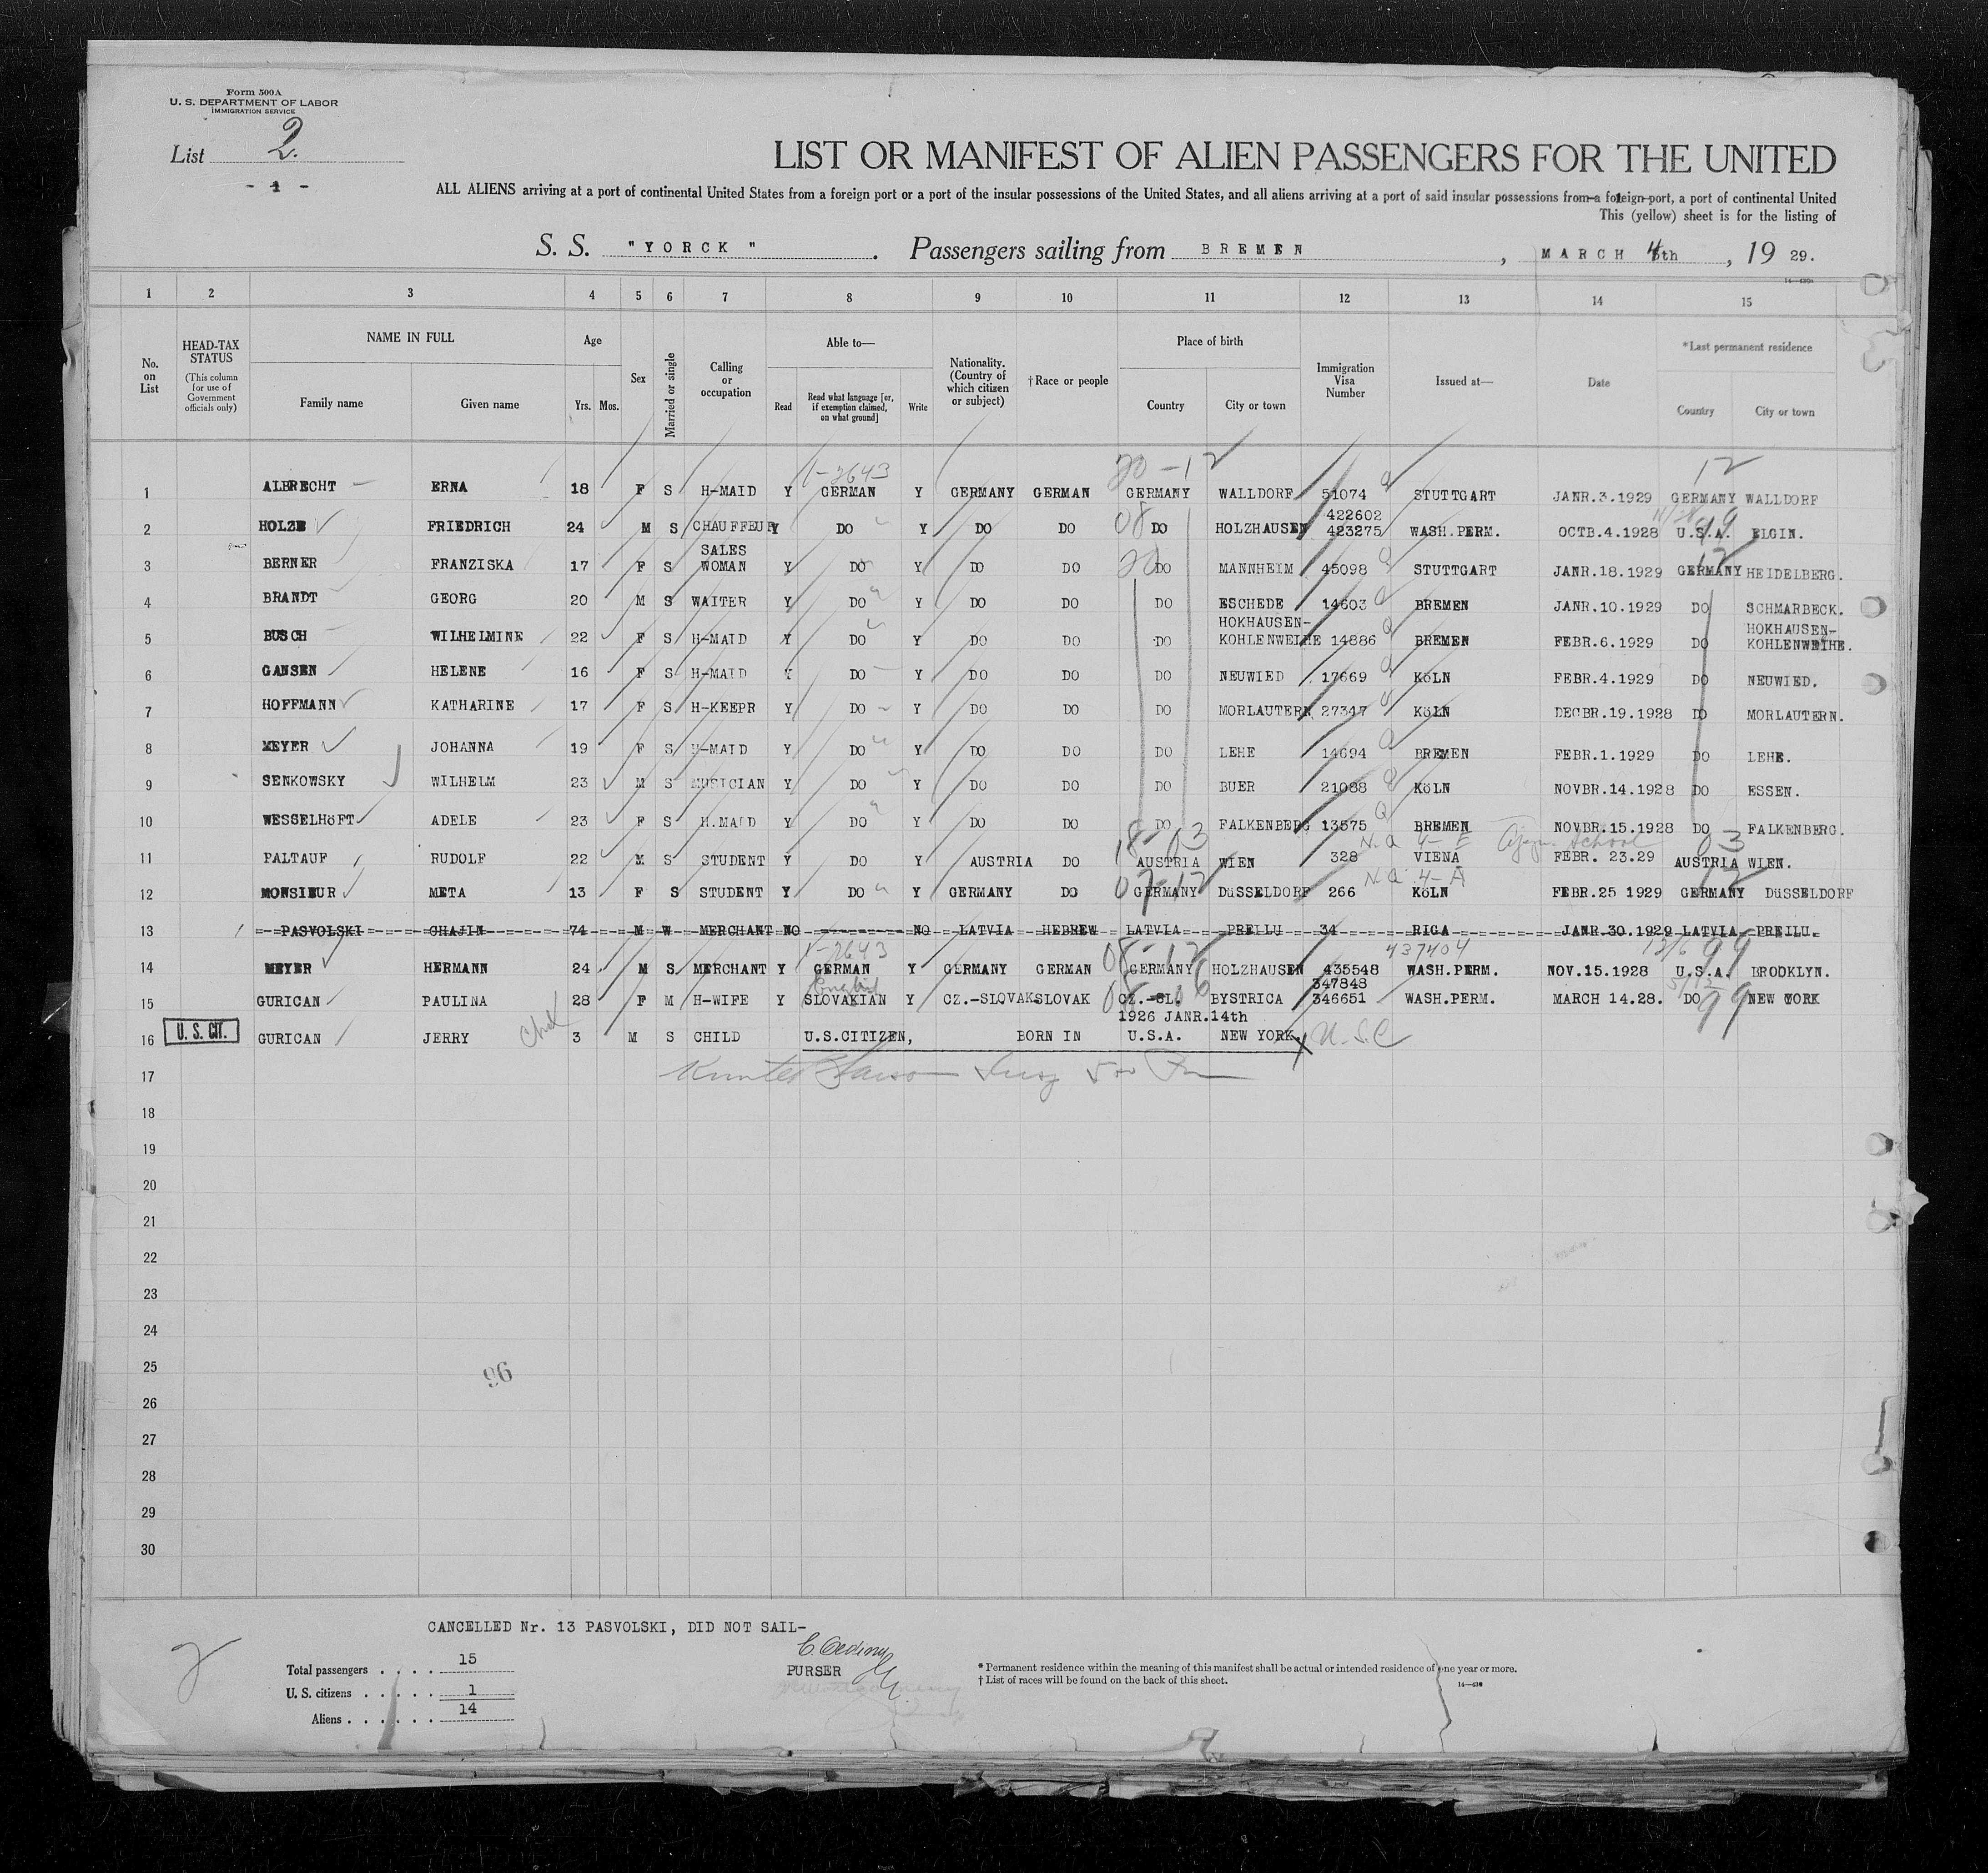 Form 500A
U. S. DEPARTMENT OF LABOR
IMMIGRATION SERVICE
List 2.
- 1 -
LIST OR MANIFEST OF ALIEN PASSENGERS FOR THE UNITED
ALL ALIENS arriving at a port of continental United States from a foreign port or a port of the insular possessions of the United States, and all aliens arriving at a port of said insular possessions from a foreign port, a port of continental United
This (yellow) sheet is for the listing of
S. S. "YORCK". Passengers sailing from BREMEN, MARCH 4th, 19 29.
14—430a
1 2 3 4 5 6 7 8 9 10 11 12 13 14 15
No. on List
HEAD-TAX STATUS
(This column for use of Government officials only)
NAME IN FULL
Family name Given name
Age
Yrs. Mos.
Sex
Married or single
Calling or occupation
Able to—
Read Read what language [or, if exemption claimed, on what ground] Write
Nationality. (Country of which citizen or subject)
†Race or people
Place of birth
Country City or town
Immigration Visa Number
Issued at—
Date
*Last permanent residence
Country City or town
1-2643 20-12 12
1 ALBRECHT ERNA 18 F S H-MAID Y GERMAN Y GERMANY GERMAN GERMANY WALLDORF 51074 Q STUTTGART JANR.3.1929 GERMANY WALLDORF
422602
2 HOLZE FRIEDRICH 24 M S CHAUFFEUR Y DO Y DO DO 08 DO HOLZHAUSEN 423275 WASH.PERM. OCTB.4.1928 U.S.A. 99 ELGIN.
SALES
3 BERNER FRANZISKA 17 F S WOMAN Y DO Y DO DO 20 DO MANNHEIM 45098 Q STUTTGART JANR.18.1929 GERMANY 12 HEIDELBERG.
4 BRANDT GEORG 20 M S WAITER Y DO Y DO DO DO ESCHEDE 14603 Q BREMEN JANR.10.1929 DO SCHMARBECK.
HOKHAUSEN- HOKHAUSEN-
5 BUSCH WILHELMINE 22 F S H-MAID Y DO Y DO DO DO KOHLENWEIHE 14886 Q BREMEN FEBR.6.1929 DO KOHLENWEIHE.
6 GANSEN HELENE 16 F S H-MAID Y DO Y DO DO DO NEUWIED 17669 Q KöLN FEBR.4.1929 DO NEUWIED.
7 HOFFMANN KATHARINE 17 F S H-KEEPR Y DO Y DO DO DO MORLAUTERN 27347 Q KöLN DECBR.19.1928 DO MORLAUTERN.
8 MEYER JOHANNA 19 F S H-MAID Y DO Y DO DO DO LEHE 14694 Q BREMEN FEBR.1.1929 DO LEHE.
9 SENKOWSKY WILHELM 23 M S MUSICIAN Y DO Y DO DO DO BUER 21088 Q KöLN NOVBR.14.1928 DO ESSEN.
10 WESSELHöFT ADELE 23 F S H.MAID Y DO Y DO DO DO FALKENBERG 13575 Q BREMEN NOVBR.15.1928 DO FALKENBERG.
18-03 N.Q 4-E School 03
11 PALTAUF RUDOLF 22 M S STUDENT Y DO Y AUSTRIA DO AUSTRIA WIEN 328 VIENA FEBR. 23.29 AUSTRIA WIEN.
07-12 N.Q 4-A 12
12 MONSIEUR META 13 F S STUDENT Y DO Y GERMANY DO GERMANY DüSSELDORF 266 KöLN FEBR.25 1929 GERMANY DüSSELDORF
13 PASVOLSKI CHAJIN 74 M W MERCHANT NO NO LATVIA HEBREW LATVIA PREILU 34 RICA JANR.30.1929 LATVIA PREILU.
1-2643 08-12 437404 12/6 99
14 MEYER HERMANN 24 M S MERCHANT Y GERMAN Y GERMANY GERMAN GERMANY HOLZHAUSEN 435548 WASH.PERM. NOV.15.1928 U.S.A. BROOKLYN.
English 08-06 347848 99
15 GURICAN PAULINA 28 F M H-WIFE Y SLOVAKIAN Y CZ.-SLOVAK SLOVAK CZ.-SL. BYSTRICA 346651 WASH.PERM. MARCH 14.28. DO NEW YORK
1926 JANR.14th
16 U. S. CIT. GURICAN JERRY Chd 3 M S CHILD U.S.CITIZEN, BORN IN U.S.A. NEW YORK. X U.S.C
17
18
19
20
21
22
23
24
25
96
26
27
28
29
30
CANCELLED Nr. 13 PASVOLSKI, DID NOT SAIL-
2
Total passengers . . . . 15
U. S. citizens . . . . . 1
Aliens . . . . . . 14
PURSER
* Permanent residence within the meaning of this manifest shall be actual or intended residence of one year or more.
† List of races will be found on the back of this sheet.
14—430